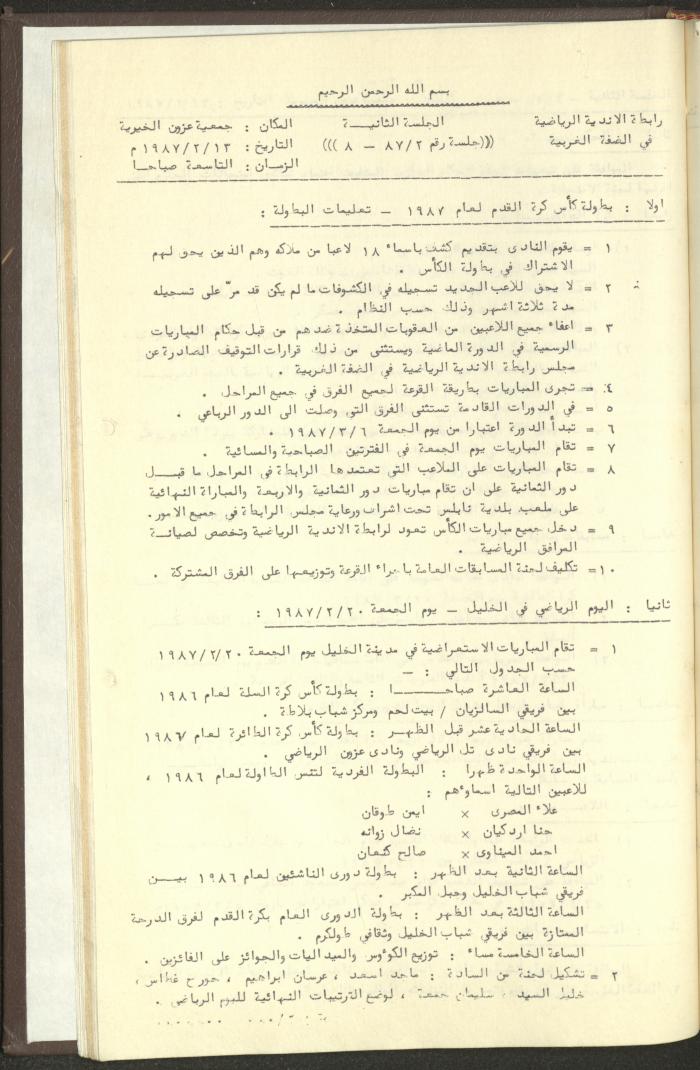 بسم الله الرحمن الرحيم
رابطة الاندية الرياضية الجلسة الثانيــة المكان : جمعية عزون الخيرية
في الضفة الغربية (((جلسة رقم ٨٧/٢ – ٨ ))) التاريخ : ١٩٨٧/٢/١٣ م
الزمـان : التاسعـة صباحـا
اولا : بطولة كأس كرة القدم لعام ١٩٨٧ – تعليمات البطولة :
١ = يقوم النادى بتقديم كشف باسماء ١٨ لاعبا من ملاكه وهم الذين يحق لهم
الاشتراك في بطولة الكأس .
٢ = لا يحق للاعب الجديد تسجيله في الكشوفات ما لم يكن قد مرّ على تسجيله
مدة ثلاثة اشهر وذلك حسب النظام .
٣ = اعفاء جميع اللاعبين من العقوبات المتخذة ضدهم من قبل حكام المباريات
الرسمية في الدورة الماضية ويستثنى من ذلك قرارات التوقيف الصادرة عن
مجلس رابطة الاندية الرياضية في الضفة الغربية .
٤ = تجرى المباريات بطريقة القرعة لجميع الفرق في جميع المراحل .
٥ = في الدورات القادمة تستثنى الفرق التي وصلت الى الدور الرباعي .
٦ = تبدأ الدورة اعتبارا من يوم الجمعة ١٩٨٧/٣/٦ .
٧ = تقام المباريات يوم الجمعة في الفترتين الصباحية والمسائية .
٨ = تقام المباريات على الملاعب التي تعتمدها الرابطة في المراحل ما قبــل
دور الثمانية على ان تقام مباريات دور الثمانية والاربعة والمباراة النهائية
على ملعب بلدية نابلس تحت اشراف ورعاية مجلس الرابطة في جميع الامور.
٩ = دخل جميع مباريات الكأس تعود لرابطة الاندية الرياضية وتخصص لصيانـة
المرافق الرياضية .
١٠= تكليف لجنة المسابقات العامة باجراء القرعة وتوزيعها على الفرق المشتركة .
ثانيا : اليوم الرياضي في الخليل – يوم الجمعة ١٩٨٧/٢/٢٠ :
١ = تقام المباريات الاستعراضية في مدينة الخليل يوم الجمعة ١٩٨٧/٢/٢٠
حسب الجدول التالي : –
الساعة العاشرة صباحــــــا : بطولة كأس كرة السلة لعام ١٩٨٦
بين فريقي السالزيان / بيت لحم ومركز شباب بلاطة .
الساعة الحادية عشر قبل الظهـر : بطولة كأس كرة الطائرة لعام ١٩٨٦
بين فريقي نادى تل الرياضي ونادى عزون الرياضي .
الساعة الواحدة ظهرا : البطولة الفردية لتنس الطاولة لعام ١٩٨٦ ،
للاعبين التالية اسماؤهم :
علاء المصرى × ايمن طوقان
حنا ارد كيان × نضال زوانه
احمد الميناوى × صالح كنعان
الساعة الثانية بعد الظهر : بطولة دورى الناشئين لعام ١٩٨٦ بيــن
فريقي شباب الخليل وجبل المكبر .
الساعة الثالثة بعد الظهر : بطولة الدورى العام بكرة القدم لفرق الدرجة
الممتازة بين فريقي شباب الخليل وثقافي طولكرم .
الساعة الخامسة مساء : توزيع الكؤوس والميداليات والجوائز على الفائزين .
٢ = تشكيل لجنة من السادة : ماجد اسعد ، عرسان ابراهيم ، جورج غطاس ،
خليل السيد ، سليمان جمعة ، لوضع الترتيبات النهائية لليوم الرياضي .